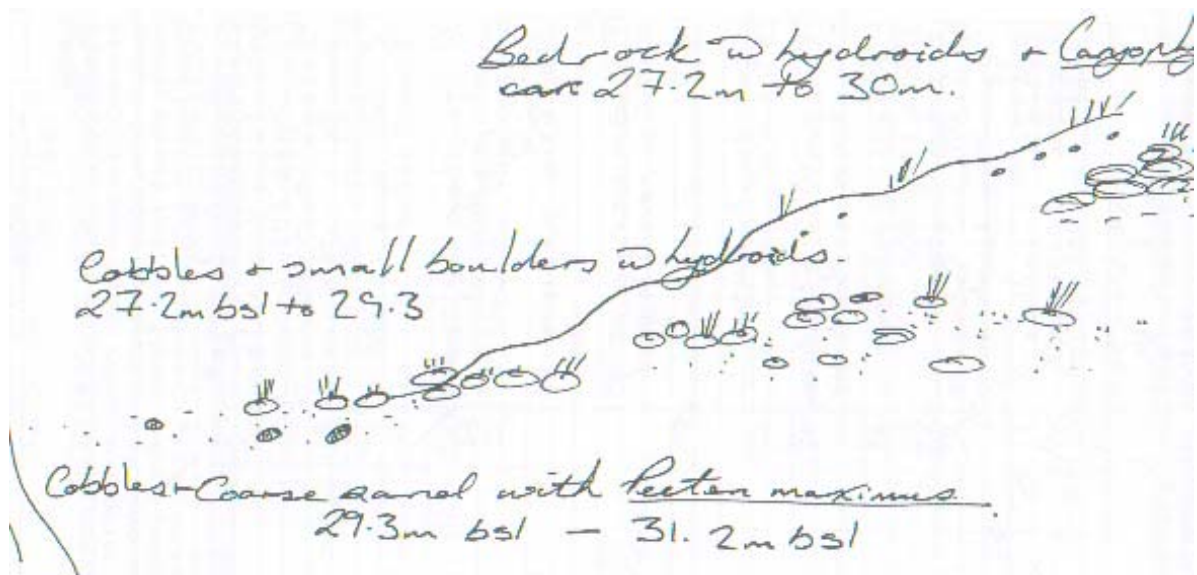 Bedrock w hydroids + Caryophy
27.2m to 30m.
Cobbles + small boulders w hydroids.
27.2m bsl to 29.3
Cobbles + Coarse sand with Pecten maximus.
29.3m bsl – 31.2m bsl